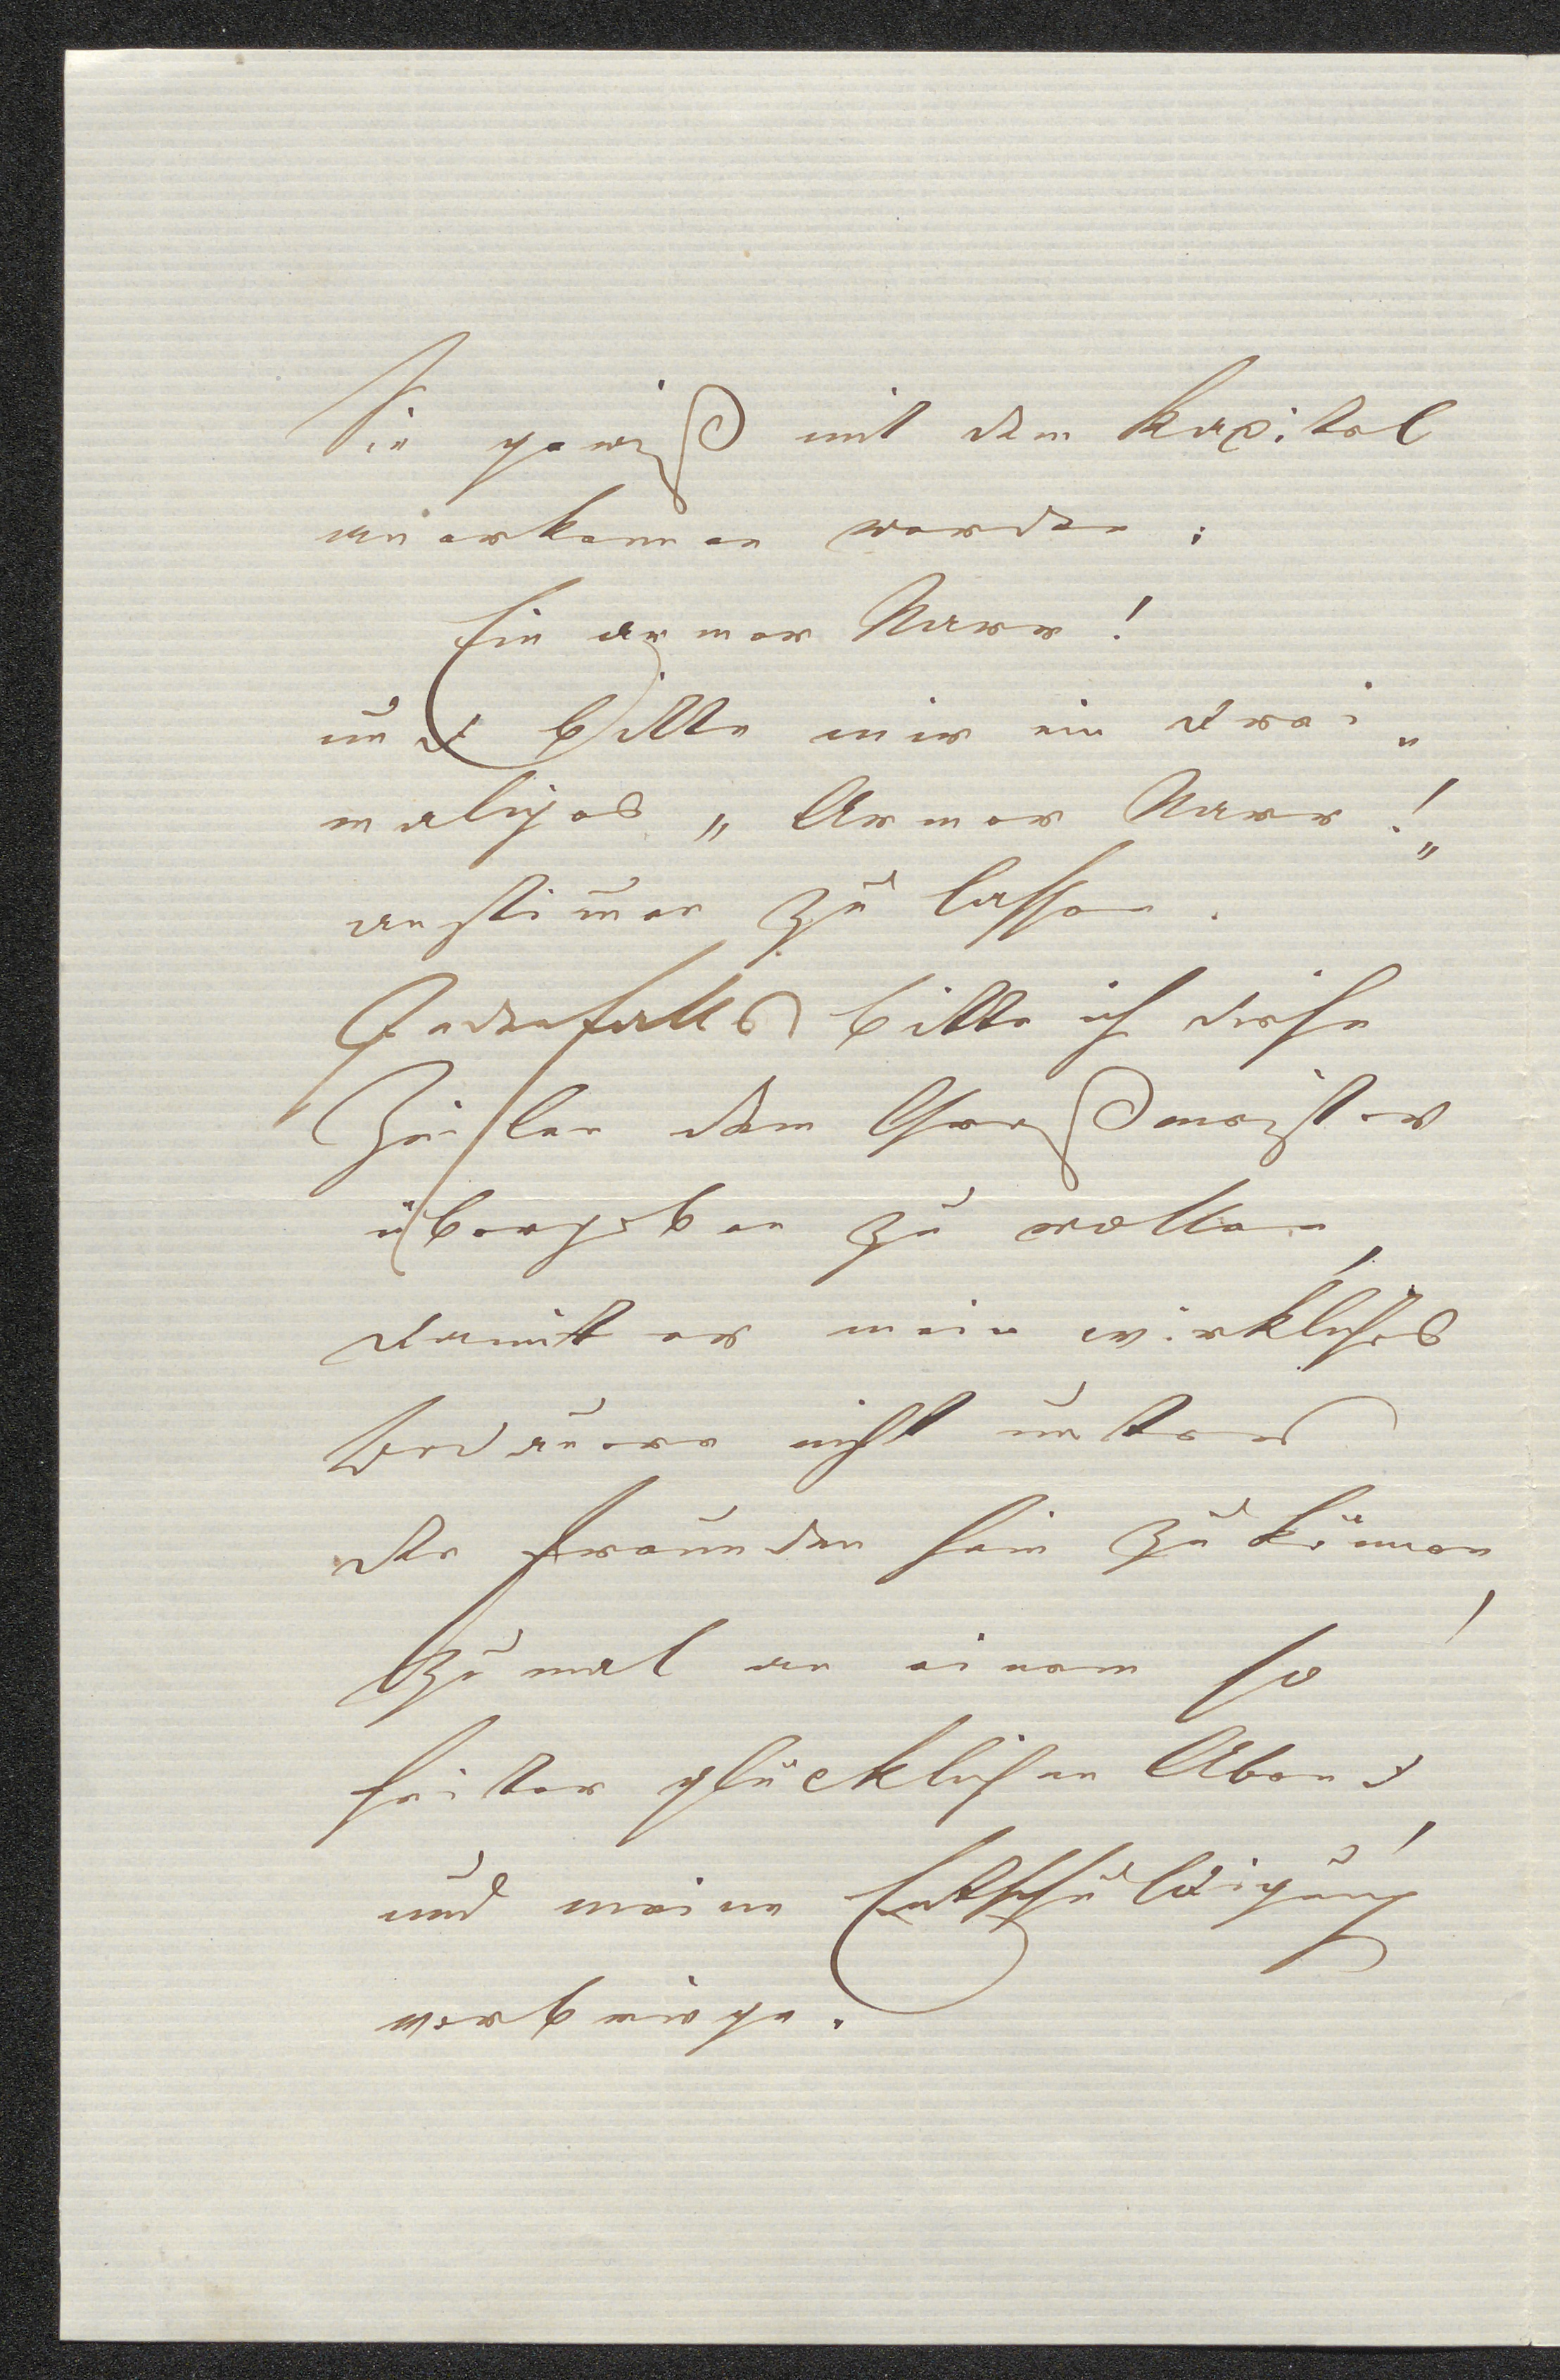 Sie gewiß mit dem Kapitel
anerkennen werden:
Ein armer Narr!
und bitte mir ein drei„
maliges „Armer Narr!„
anstimen zu lassen.
Jedenfalls bitte ich diese
Zeilen dem Großmeister
übergeben zu wollen,
damit er mein wirkliches
Bedauern nicht unter
den Freunden sein zu können,
zumal an einem so
heiter glücklichen Abend,
und meine Entschuldigung
vorbringe.